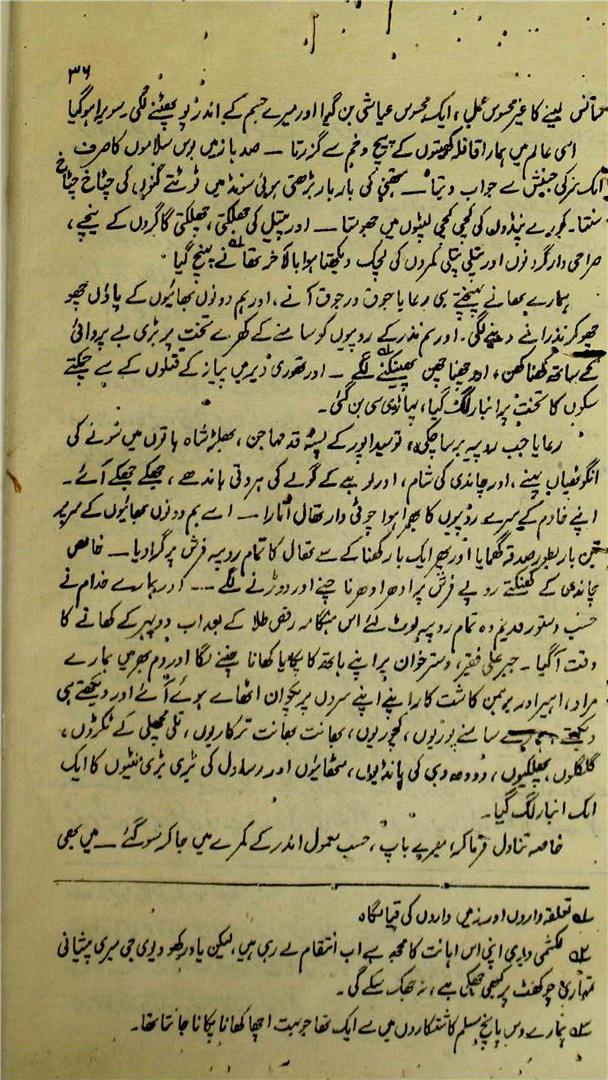 ۳۶
سانس لینے کا غیر محسوس عمل، ایک محسوس عیاشی بن گیا اور میرے جسم کے اندر پو پھٹنے لگی۔ سویرا ہو گیا
اسی عالم میں ہمارا قافلہ کھیتوں کے پیچ و خم سے گزرتا — صدہا زمیں بوس سلاموں کا صرف
ایک سر کی جنبش سے جواب دیتا — کی بار بار بڑھتی ہوئی سونڈ میں ٹوٹتے گنوں کی چٹاخ چٹاخ
سنتا۔ کورے پنڈوں کی کچی کچی لپٹوں میں جھومتا — اور پیتل کی جھلکتی، چھلکتی گاگروں کے نیچے،
صراحی دار گردنوں اور پتلی پتلی کمروں کی لچک دیکھتا ہوا بالآخر تھانے پہنچ گیا
ہمارے تھانے پہنچتے ہی رعایا جوق در جوق آنے، اور ہم دونوں بھائیوں کے پاؤں چھو
چھو کر نذرانے دینے لگی۔ اور ہم نذر کے روپیوں کو سامنے کے کھرے تخت پر بڑی بے پروائی
کے ساتھ کھنا کھن، اور چھنا چھن پھینکنے لگے — اور تھوڑی دیر میں پیاز کے قتلوں کے سے چمکتے
سکوں کا تخت پر انبار لگ گیا، پہاڑی سی بن گئی۔
رعایا جب روپیہ برسا چکی، تو سیداپور کے پستہ قد مہاجن، شاہ ہاتھوں میں سونے کی
انگوٹھیاں پہنے، اور چاندی کی شام، اور لوہے کے گولے کی باندھے، جھکے جھکے آئے۔
اپنے خادم کے سر سے روپیوں کا بھرا ہوا چوٹی دار تھال اتارا — اسے ہم دونوں بھائیوں کے سر پر
تین بار بطور صدقہ گھمایا اور پھر ایک بار کھنا کے سے تھال کا تمام روپیہ فرش پر گرا دیا — خالص
چاندی کے کھنکتے روپے فرش پر ادھر ادھر ناچنے اور دوڑنے لگے --- اور ہمارے خدام نے
حسب دستور قدیم وہ تمام روپیہ لوٹ لئے اس ہنگامہ رقص طلا کے بعد اب دوپہر کے کھانے کا
وقت آگیا۔ علی فقیر، دسترخوان پر اپنے ہاتھ کا پکایا کھانا چننے لگا اور دم بھر میں ہمارے
مراد، اہیر اور برہمن کاشت کار اپنے اپنے سروں پر پکوان اٹھائے ہوئے آئے اور دیکھتے ہی
دیکھتے سامنے پوڑیوں، کچوریوں، بھانت بھانت ترکاریوں، تلی مچھلی کے ٹکڑوں،
گلگلوں، پھلکیوں، دودھ دہی کی ہانڈیوں، مٹھائیوں اور رساول کی بڑی بڑی کا ایک
ایک انبار لگ گیا۔
خاصہ تناول فرما کر، میرے باپ، حسب معمول اندر کے کمرے میں جا کر سو گئے — میں بھی
۱؎ تعلقہ داروں اور زمیں داروں کی قیام گاہ
۲؎ لکشمی دیوی اپنی اس اہانت کا مجھ سے اب انتقام لے رہی ہیں، لیکن یاد رکھو دیوی جی میری پیشانی
تمہاری چوکھٹ پر کبھی جھکی ہے، نہ جھک سکے گی۔
۳؎ ہمارے دس پانچ مسلم کاشتکاروں میں سے ایک تھا جو بہت اچھا کھانا پکانا جانتا تھا۔